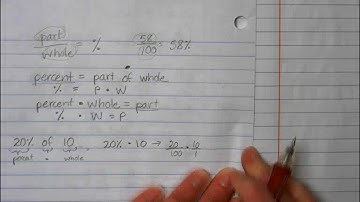 part/whole = %    58/100 = 58%
percent = part of whole
% = P • W
percent • whole = part
% • W = P
20% of 10 → 20% • 10 → 20/100 • 10/1
percent • whole